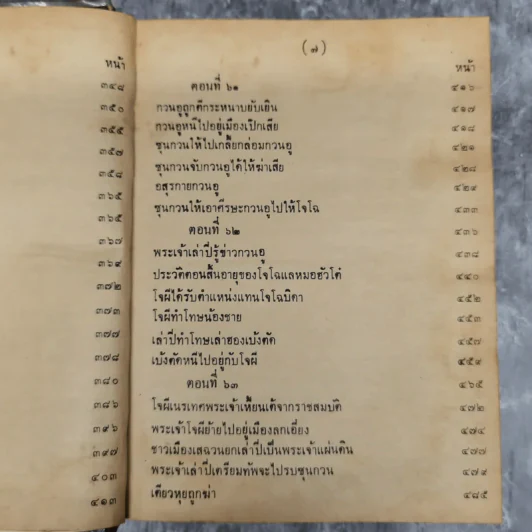 หน้า
๓๔๘
๓๕๐
๓๕๕
๓๕๗
๓๕๘
๓๖๕
๓๖๕
๓๖๗
๓๖๙
๓๗๒
๓๗๓
๓๗๗
๓๗๘
๓๘๐
๓๘๖
๓๙๖
๓๙๗
๔๐๓
๔๑๓
(๗)
หน้า
ตอนที่ ๖๑ ๔๑๐
กวนอูถูกตีกระหนาบยับเยิน ๔๑๗
กวนอูหนีไปอยู่เมืองเป๊กเสีย ๔๑๘
ซุนกวนให้ไปเกลี้ยกล่อมกวนอู ๔๒๑
ซุนกวนจับกวนอูได้ให้ฆ่าเสีย ๔๒๘
อสุรกายกวนอู ๔๒๙
ซุนกวนให้เอาศีรษะกวนอูไปให้โจโฉ ๔๓๓
ตอนที่ ๖๒ ๔๓๖
พระเจ้าเล่าปี่รู้ข่าวกวนอู ๔๓๘
ประวัติตอนสิ้นอายุของโจโฉแลหมอฮัวโต๋ ๔๔๐
โจผีได้รับตำแหน่งแทนโจโฉบิดา ๔๕๒
โจผีทำโทษน้องชาย ๔๕๓
เล่าปี่ทำโทษเล่าฮองเบ้งตัด ๔๕๗
เบ้งตัดหนีไปอยู่กับโจผี ๔๕๙
ตอนที่ ๖๓ ๔๖๕
โจผีเนรเทศพระเจ้าเหี้ยนเต้จากราชสมบัติ ๔๗๒
พระเจ้าโจผีย้ายไปอยู่เมืองลกเอี๋ยง ๔๗๔
ชาวเมืองเสฉวนยกเล่าปี่เป็นพระเจ้าแผ่นดิน ๔๗๗
พระเจ้าเล่าปี่เตรียมทัพจะไปรบซุนกวน ๔๗๙
เตียวหุยถูกฆ่า ๔๘๕